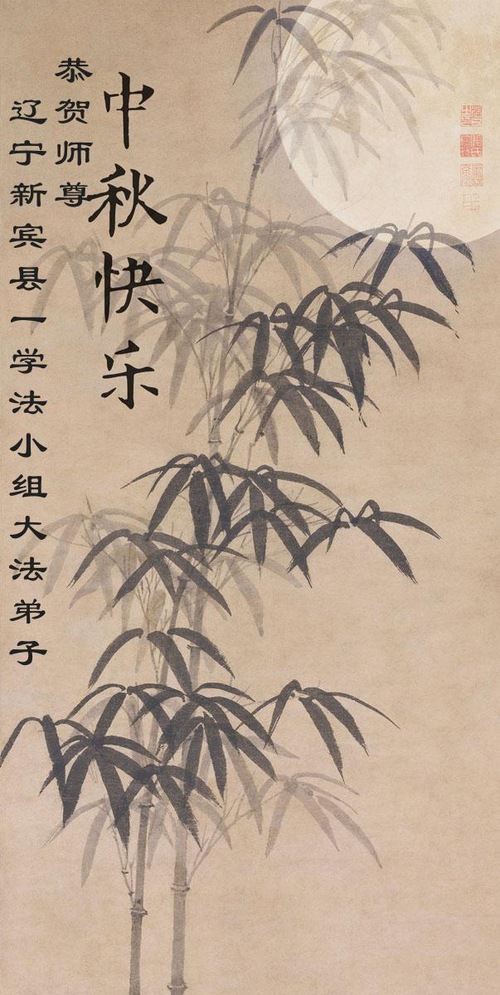 中秋快乐
恭贺师尊
辽宁新宾县一学法小组大法弟子